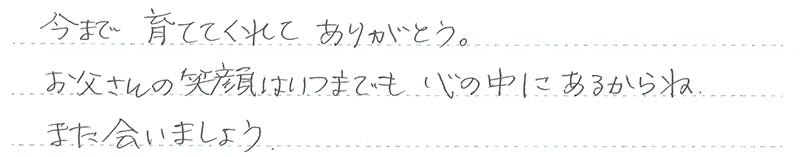 今まで 育ててくれて ありがとう。
お父さんの笑顔はいつまでも 心の中に あるからね.
また会いましょう.